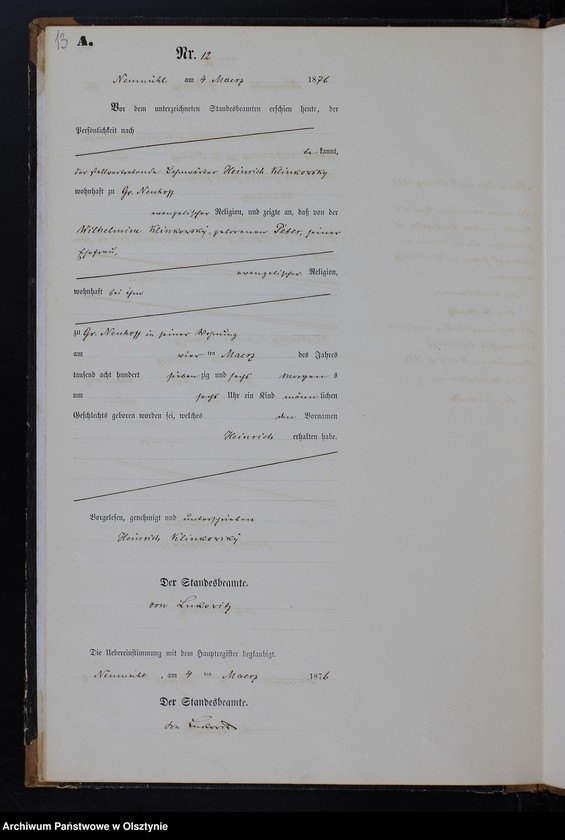 13
A.
Nr. 12
Neumühl am 4 Maerz 1876
Vor dem unterzeichneten Standesbeamten erschien heute, der
Persönlichkeit nach
be kannt,
der stellvertretende Heinrich Klinkovsky
wohnhaft zu Gr. Neuhoff
evangelischer Religion, und zeigte an, daß von der
Wilhelmine Klinkovsky, geborenen Peter, seiner
Ehefrau,
evangelischer Religion,
wohnhaft bei ihm
zu Gr. Neuhoff in seiner Wohnung
am vier ten Maerz des Jahres
tausend acht hundert sieben zig und sechs Morgen s
um sechs Uhr ein Kind männ lichen
Geschlechts geboren worden sei, welches den Vornamen
Heinrich erhalten habe.
Vorgelesen, genehmigt und unterschrieben
Heinrich Klinkovsky
Der Standesbeamte.
von Lukovitz
Die Uebereinstimmung mit dem Hauptregister beglaubigt.
Neumühl, am 4 ten Maerz 1876
Der Standesbeamte.
von Lukovitz
Archiwum Państwowe w Olsztynie